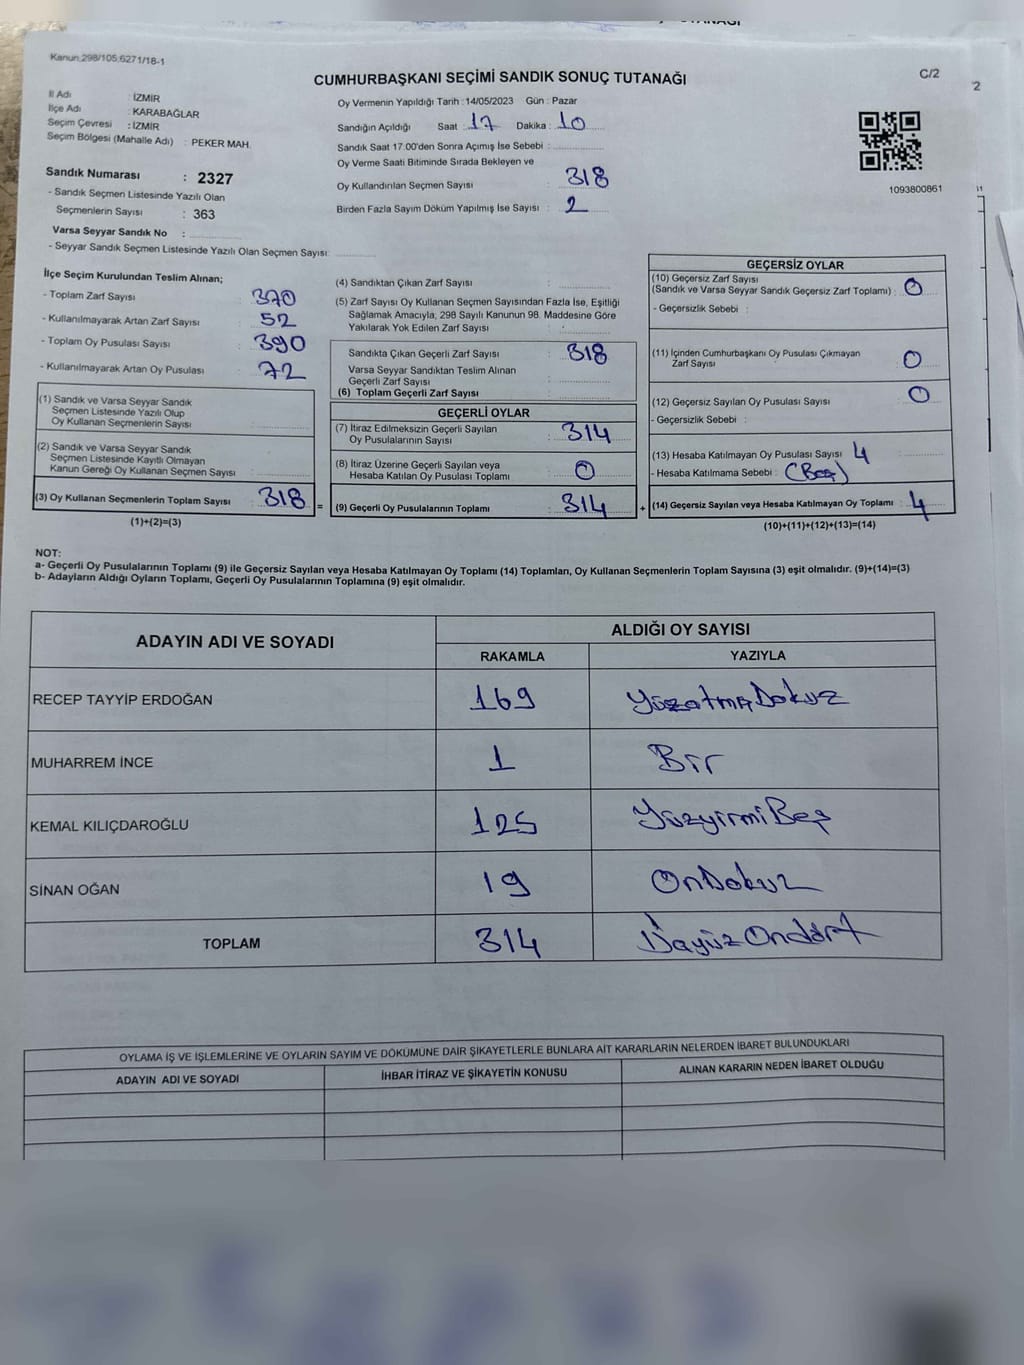 Kanun:298/105,6271/18-1
CUMHURBAŞKANI SEÇİMİ SANDIK SONUÇ TUTANAĞI
C/2
İl Adı : İZMİR
İlçe Adı : KARABAĞLAR
Seçim Çevresi : İZMİR
Seçim Bölgesi (Mahalle Adı) : PEKER MAH.
Sandık Numarası : 2327
- Sandık Seçmen Listesinde Yazılı Olan
Seçmenlerin Sayısı : 363
Varsa Seyyar Sandık No :
- Seyyar Sandık Seçmen Listesinde Yazılı Olan Seçmen Sayısı:
Oy Vermenin Yapıldığı Tarih :14/05/2023 Gün : Pazar
Sandığın Açıldığı Saat : 17 Dakika : 10
Sandık Saat 17:00'den Sonra Açımış İse Sebebi :
Oy Verme Saati Bitiminde Sırada Bekleyen ve
Oy Kullandırılan Seçmen Sayısı : 318
Birden Fazla Sayım Döküm Yapılmış İse Sayısı : 2
1093800861
İlçe Seçim Kurulundan Teslim Alınan;
- Toplam Zarf Sayısı : 370
- Kullanılmayarak Artan Zarf Sayısı : 52
- Toplam Oy Pusulası Sayısı : 390
- Kullanılmayarak Artan Oy Pusulası : 72
(1) Sandık ve Varsa Seyyar Sandık
Seçmen Listesinde Yazılı Olup
Oy Kullanan Seçmenlerin Sayısı :
(2) Sandık ve Varsa Seyyar Sandık
Seçmen Listesinde Kayıtlı Olmayan
Kanun Gereği Oy Kullanan Seçmen Sayısı :
(3) Oy Kullanan Seçmenlerin Toplam Sayısı : 318 =
(1)+(2)=(3)
(4) Sandıktan Çıkan Zarf Sayısı :
(5) Zarf Sayısı Oy Kullanan Seçmen Sayısından Fazla İse, Eşitliği
Sağlamak Amacıyla; 298 Sayılı Kanunun 98. Maddesine Göre
Yakılarak Yok Edilen Zarf Sayısı :
Sandıkta Çıkan Geçerli Zarf Sayısı : 318
Varsa Seyyar Sandıktan Teslim Alınan
Geçerli Zarf Sayısı :
(6) Toplam Geçerli Zarf Sayısı :
GEÇERLİ OYLAR
(7) İtiraz Edilmeksizin Geçerli Sayılan
Oy Pusulalarının Sayısı : 314
(8) İtiraz Üzerine Geçerli Sayılan veya
Hesaba Katılan Oy Pusulaları Toplamı : 0
(9) Geçerli Oy Pusulalarının Toplamı : 314 +
GEÇERSİZ OYLAR
(10) Geçersiz Zarf Sayısı
(Sandık ve Varsa Seyyar Sandık Geçersiz Zarf Toplamı) : 0
- Geçersizlik Sebebi :
(11) İçinden Cumhurbaşkanı Oy Pusulası Çıkmayan
Zarf Sayısı : 0
(12) Geçersiz Sayılan Oy Pusulası Sayısı : 0
- Geçersizlik Sebebi :
(13) Hesaba Katılmayan Oy Pusulası Sayısı : 4
- Hesaba Katılmama Sebebi : (Boş)
(14) Geçersiz Sayılan veya Hesaba Katılmayan Oy Toplamı : 4
(10)+(11)+(12)+(13)=(14)
NOT:
a- Geçerli Oy Pusulalarının Toplamı (9) ile Geçersiz Sayılan veya Hesaba Katılmayan Oy Toplamı (14) Toplamları, Oy Kullanan Seçmenlerin Toplam Sayısına (3) eşit olmalıdır. (9)+(14)=(3)
b- Adayların Aldığı Oyların Toplamı, Geçerli Oy Pusulalarının Toplamına (9) eşit olmalıdır.
ADAYIN ADI VE SOYADI ALDIĞI OY SAYISI
RAKAMLA YAZIYLA
RECEP TAYYİP ERDOĞAN 169 YüzatmışDokuz
MUHARREM İNCE 1 Bir
KEMAL KILIÇDAROĞLU 125 YüzyirmiBeş
SİNAN OĞAN 19 OnDokuz
TOPLAM 314 ÜçyüzOndört
OYLAMA İŞ VE İŞLEMLERİNE VE OYLARIN SAYIM VE DÖKÜMÜNE DAİR ŞİKAYETLERLE BUNLARA AİT KARARLARIN NELERDEN İBARET BULUNDUKLARI
ADAYIN ADI VE SOYADI İHBAR İTİRAZ VE ŞİKAYETİN KONUSU ALINAN KARARIN NEDEN İBARET OLDUĞU